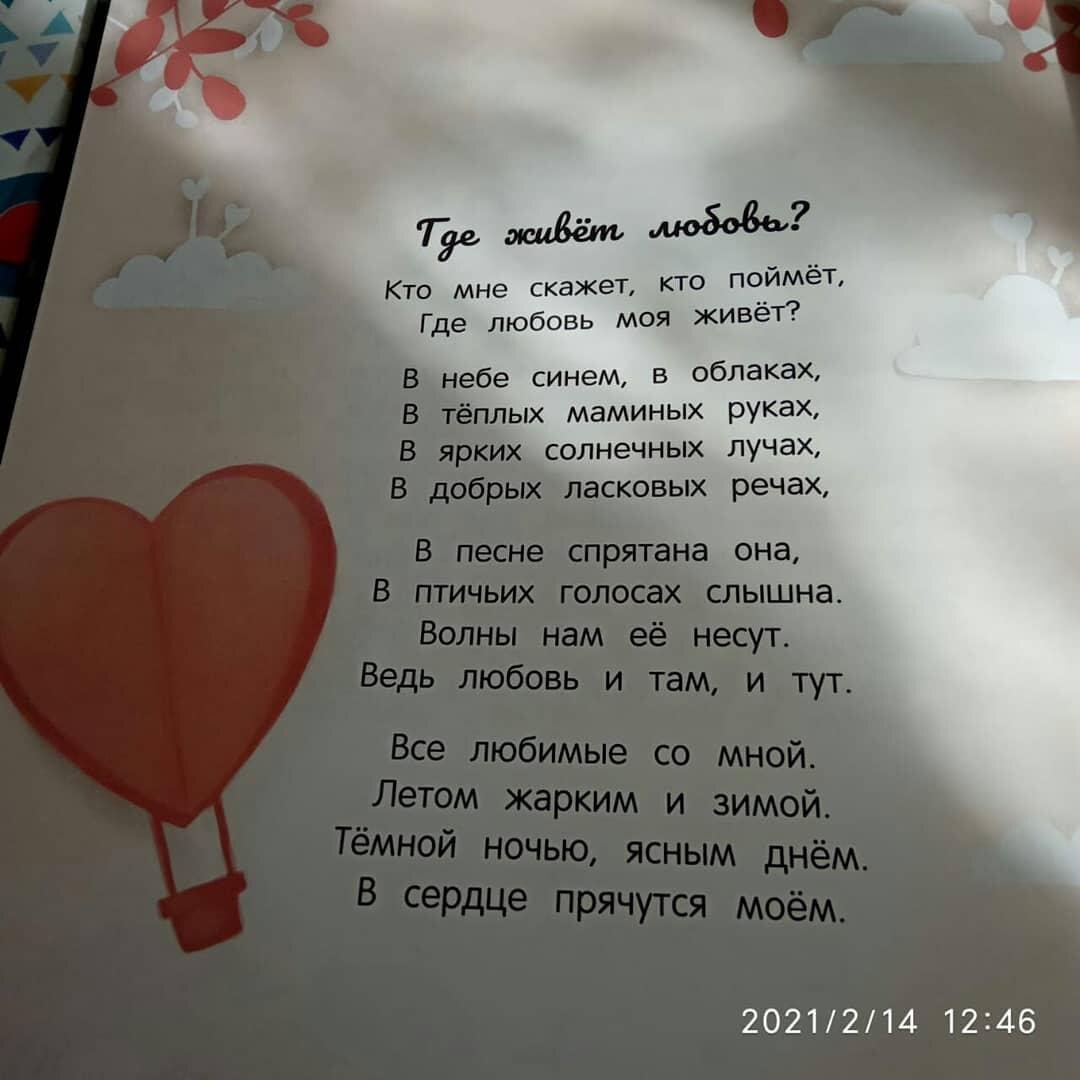 Где живёт любовь?
Кто мне скажет, кто поймёт,
Где любовь моя живёт?
В небе синем, в облаках,
В тёплых маминых руках,
В ярких солнечных лучах,
В добрых ласковых речах,
В песне спрятана она,
В птичьих голосах слышна.
Волны нам её несут.
Ведь любовь и там, и тут.
Все любимые со мной.
Летом жарким и зимой.
Тёмной ночью, ясным днём.
В сердце прячутся моём.
2021/2/14 12:46